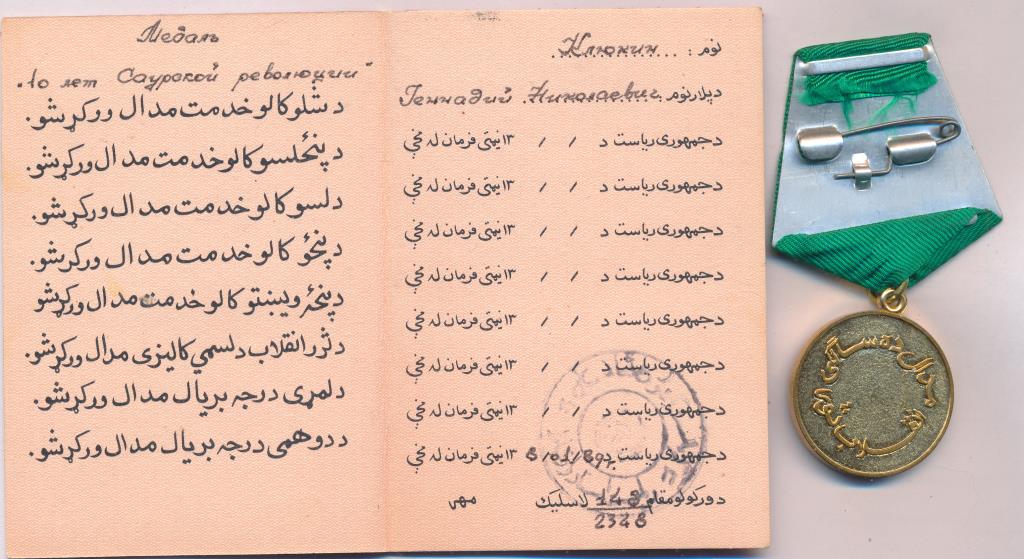 Медаль
"10 лет Саурской революции"
د شلو کالو خدمت مدال ورکړ شو.
د پنځلسو کالو خدمت مدال ورکړ شو.
د لسو کالو خدمت مدال ورکړ شو.
د پنځو کالو خدمت مدال ورکړ شو.
د پنځه ویښتو کالو خدمت مدال ورکړ شو
د ثور انقلاب د لسمي کالیزی مدال ورکړ شو.
د لمړی درجه بریال مدال ورکړ شو.
د دوهمی درجه بریال مدال ورکړ شو.
نوم : Клюкин
د پلار نوم Геннадий Николаевич
د جمهوری ریاست د / / ۱۳ نیټی فرمان له مخې
د جمهوری ریاست د / / ۱۳ نیټی فرمان له مخې
د جمهوری ریاست د / / ۱۳ نیټی فرمان له مخې
د جمهوری ریاست د / / ۱۳ نیټی فرمان له مخې
د جمهوری ریاست د / / ۱۳ نیټی فرمان له مخې
د جمهوری ریاست د / / ۱۳ نیټی فرمان له مخې
د جمهوری ریاست د / / ۱۳ نیټی فرمان له مخې
د جمهوری ریاست د ۱۳ نیټی فرمان له مخې
د ورکولو مقام 148 لاسلیک مهر
2328
مدال ده سالگی
انقلاب ثور